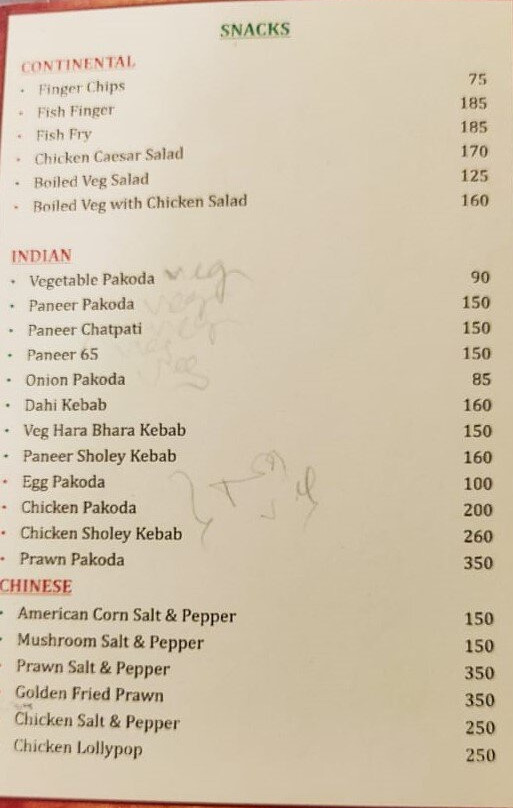 SNACKS
CONTINENTAL
• Finger Chips 75
• Fish Finger 185
• Fish Fry 185
• Chicken Caesar Salad 170
• Boiled Veg Salad 125
• Boiled Veg with Chicken Salad 160
INDIAN
• Vegetable Pakoda veg 90
• Paneer Pakoda veg 150
• Paneer Chatpati veg 150
• Paneer 65 veg 150
• Onion Pakoda veg 85
• Dahi Kebab 160
• Veg Hara Bhara Kebab 150
• Paneer Sholey Kebab 160
• Egg Pakoda 100
• Chicken Pakoda 200
• Chicken Sholey Kebab 260
• Prawn Pakoda 350
CHINESE
• American Corn Salt & Pepper 150
• Mushroom Salt & Pepper 150
• Prawn Salt & Pepper 350
• Golden Fried Prawn 350
Chicken Salt & Pepper 250
Chicken Lollypop 250